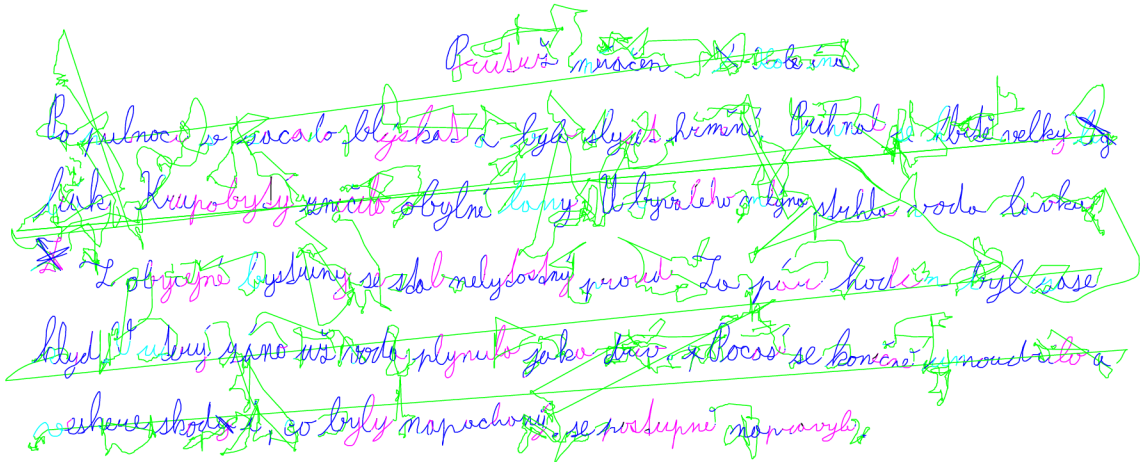 Průtrž mračen z hlubin
Po půlnoci se začalo blýskat a bylo slyšet hřmění. Přihnal se hbitě velký
hluk. Krupobytý zničilo obylné lány. U bývalého mlýna strhla voda lávku.
Z obyčejné bystřiny se stal nelýtostný proud. Za pár hodin byl zase
klyd. V úterý ráno už voda plynula jako dřív. Počasí se konečně umoudřilo a
veškeré škody, co byly napáchány, se postupně napravyly.